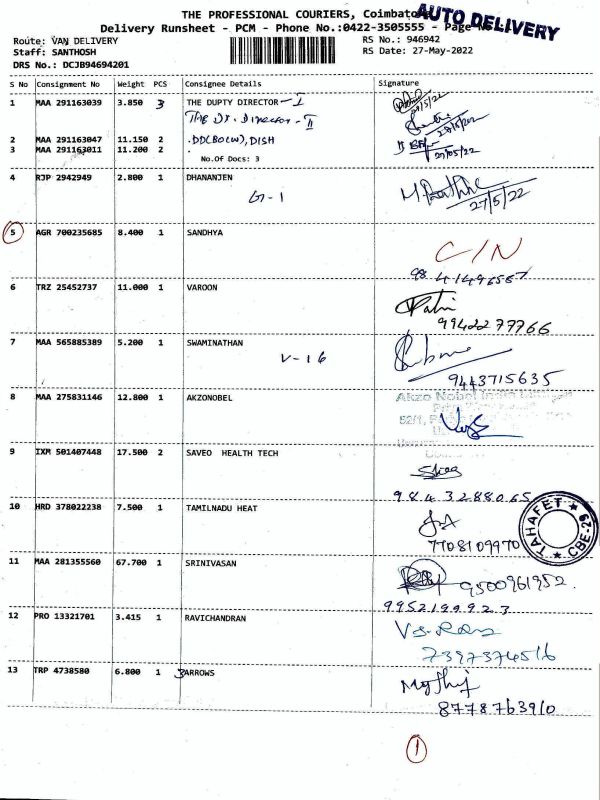 THE PROFESSIONAL COURIERS, Coimbato
AUTO DELIVERY
Delivery Runsheet - PCM - Phone No.:0422-3505555 - Page
Route: VAN DELIVERY
RS No.: 946942
Staff: SANTHOSH
RS Date: 27-May-2022
DRS No.: DCJB94694201
S No Consignment No Weight PCS Consignee Details Signature
1 MAA 291163039 3.850 3 THE DUPTY DIRECTOR - I
The Dt. Director - II
2 MAA 291163047 11.150 2 DD(BOCW), DISH
3 MAA 291163011 11.200 2
No.Of Docs: 3
4 RJP 2942949 2.800 1 DHANANJEN
G-1
27/5/22
5 AGR 700235685 8.400 1 SANDHYA
C/N
98 41496567
6 TRZ 25452737 11.000 1 VAROON
99422 77766
7 MAA 565885389 5.200 1 SWAMINATHAN
V-16
9443715635
8 MAA 275831146 12.800 1 AKZONOBEL
Akzo Nobel India
52/1,
9 IXM 501407448 17.500 2 SAVEO HEALTH TECH
984 3288065
10 HRD 378022238 7.500 1 TAMILNADU HEAT
7708109970
TAHAFET ★ CBE-29 ★
11 MAA 281355560 67.700 1 SRINIVASAN
9500961952.
9952199923
12 PRO 13321701 3.415 1 RAVICHANDRAN
7397374516
13 TRP 4738580 6.800 1 3ARROWS
8778763910
1